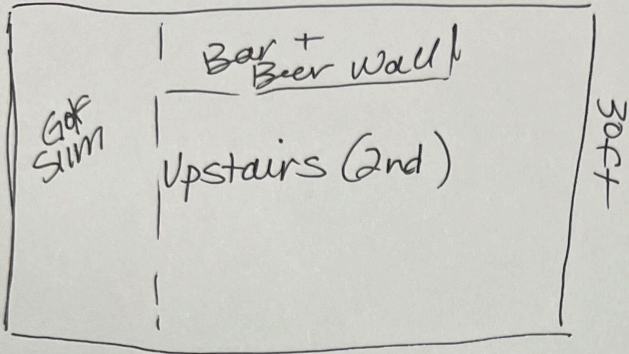 Bar +
Beer Wall
Golf
Sim
Upstairs (2nd)
30ft